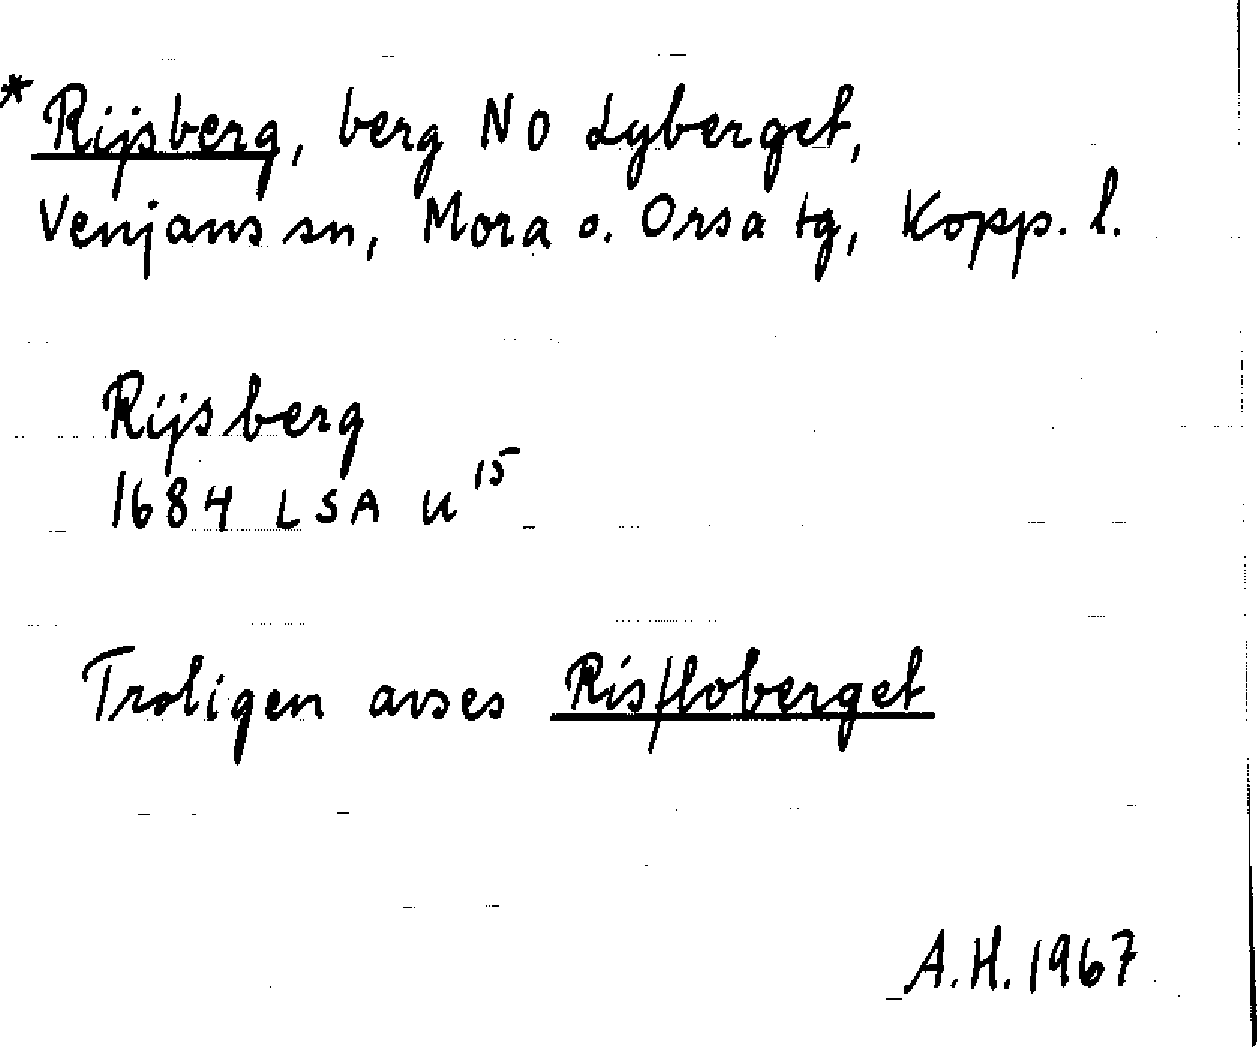 * Rijsberg, berg NO Lyberget,
Venjans sn, Mora o. Orsa tg, Kopp. l.
Rijsberg
1684 LSA U15
Troligen avses Risfloberget
A.H. 1967